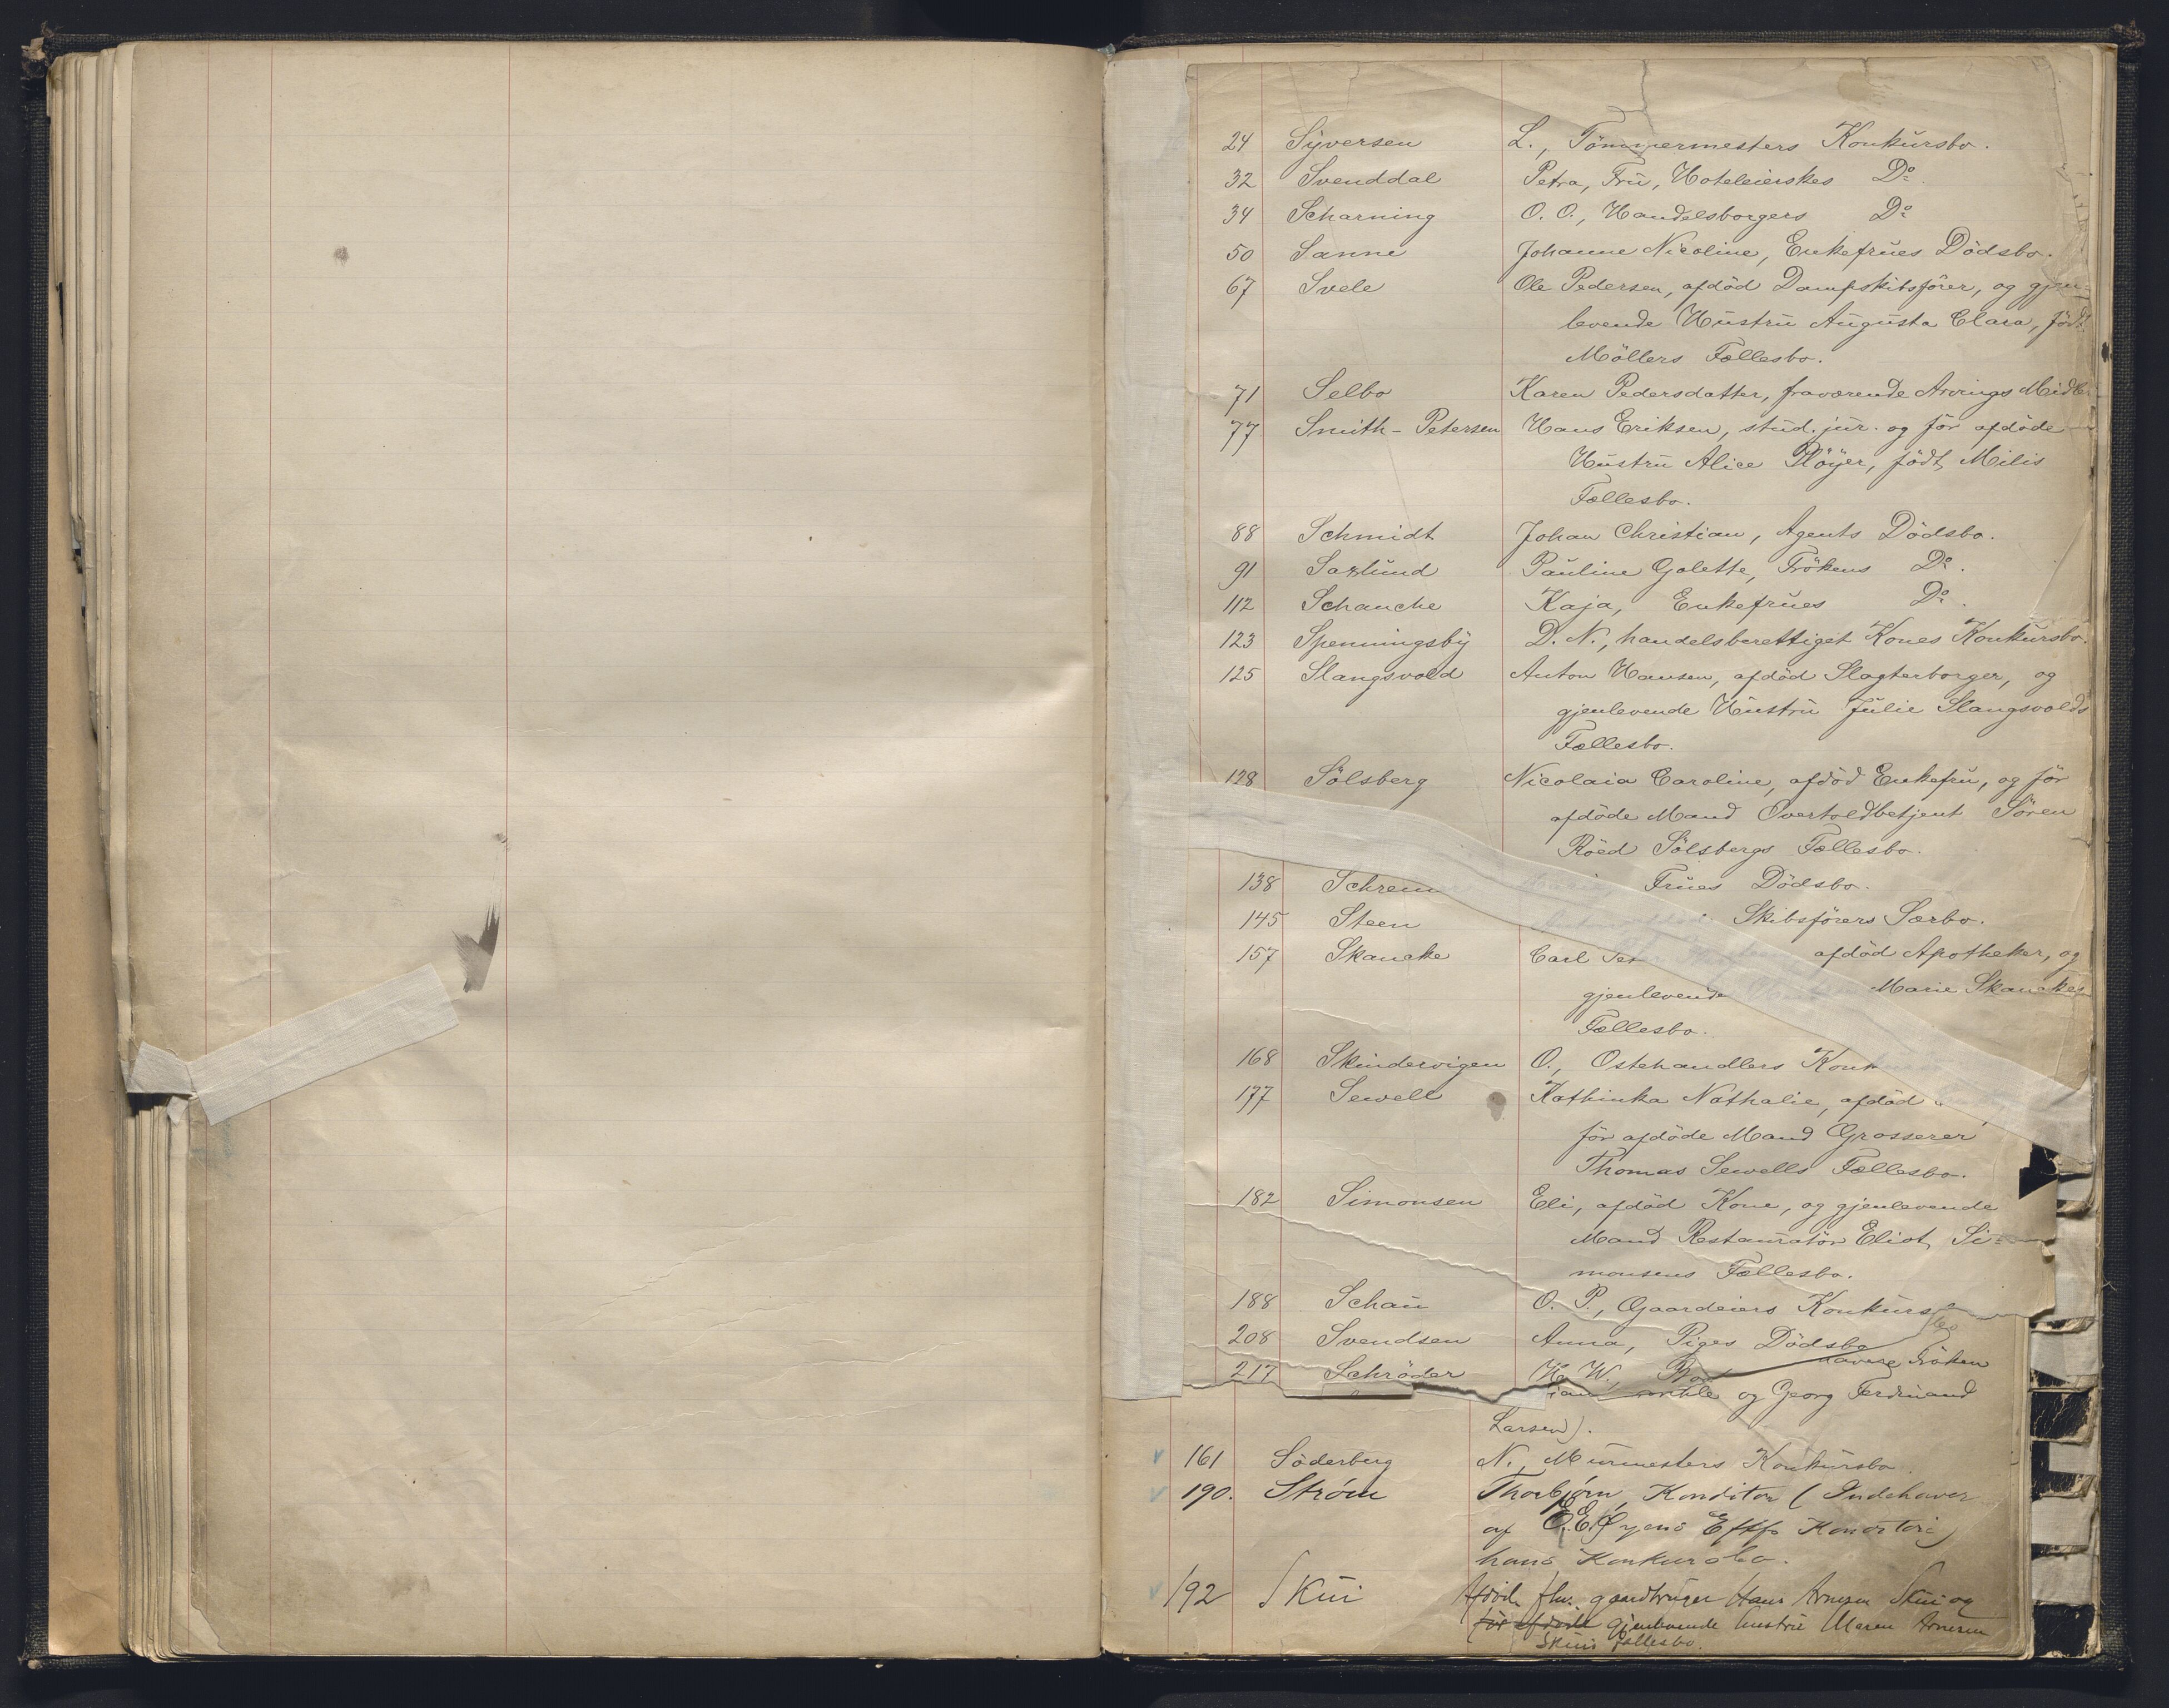 24 Syversen L., Tömmermesters Konkursbo.
32 Svenddal Petra, Fru, Hoteleierskes Do
34 Scharning O. O., Handelsborgers Do
50 Sanne Johanne Nicoline, Enkefrues Dödsbo.
67 Svele Ole Pedersen, afdöd Dampskibsförer, og gjen-
levende Hustru Augusta Clara, födt
Möllers Fællesbo.
71 Selbo Karen Pedersdatter, fraværende Arvings Midler
77 Smith-Petersen Hans Eriksen, stud. jur. og för afdöde
Hustru Alice Plöyer, födt Milis
Fællesbo.
88 Schmidt Johan Christian, Agents Dödsbo.
91 Saxlund Pauline Golette, Frökens Do.
112 Schanche Kaja, Enkefrues Do.
123 Spenningsby D. N., handelsberettiget Kones Konkursbo.
125 Slangsvold Anton Hansen, afdöd Slagterborger, og
gjenlevende Hustru Julie Slangsvolds
Fællesbo.
128 Sölsberg Nicolaia Caroline, afdöd Enkefru, og för
afdöde Mand Overtoldbetjent Sören
Röed Sölsbergs Fællesbo.
138 Frues Dödsbo.
145 Steen Skibsförers Særbo.
157 Skancke Carl afdöd Apotheker, og
gjenlevende Marie Skanckes
Fællesbo.
168 Skindervigen O., Ostehandlers
177 Sewell Kathinka Nathalie, afdöd
för afdöde Mand Grosserer
Thomas Sewells Fællesbo.
182 Simonsen Eli, afdöd Kone, og gjenlevende
Mand Restauratör Eliot Si-
monsens Fællesbo.
188 Schau O. P., Gaardeiers Konkursbo
208 Svendsen Anna, Piges Dödsbo
217 Schröder H. W., Fröken
og Georg Ferdinand
Larsen).
161 Söderberg N., Murmesters Konkursbo.
190. Strøm Thorbjørn, Konditor (Indehaver
af O.E. Øyens Eftf Konditori)
hans Konkursbo.
192 Skui Afdöde fhv. gaardbruger Hans Arnesen Skui og
för afdöde gjenlevende hustru Maren Arnesen
Skuis Fællesbo.